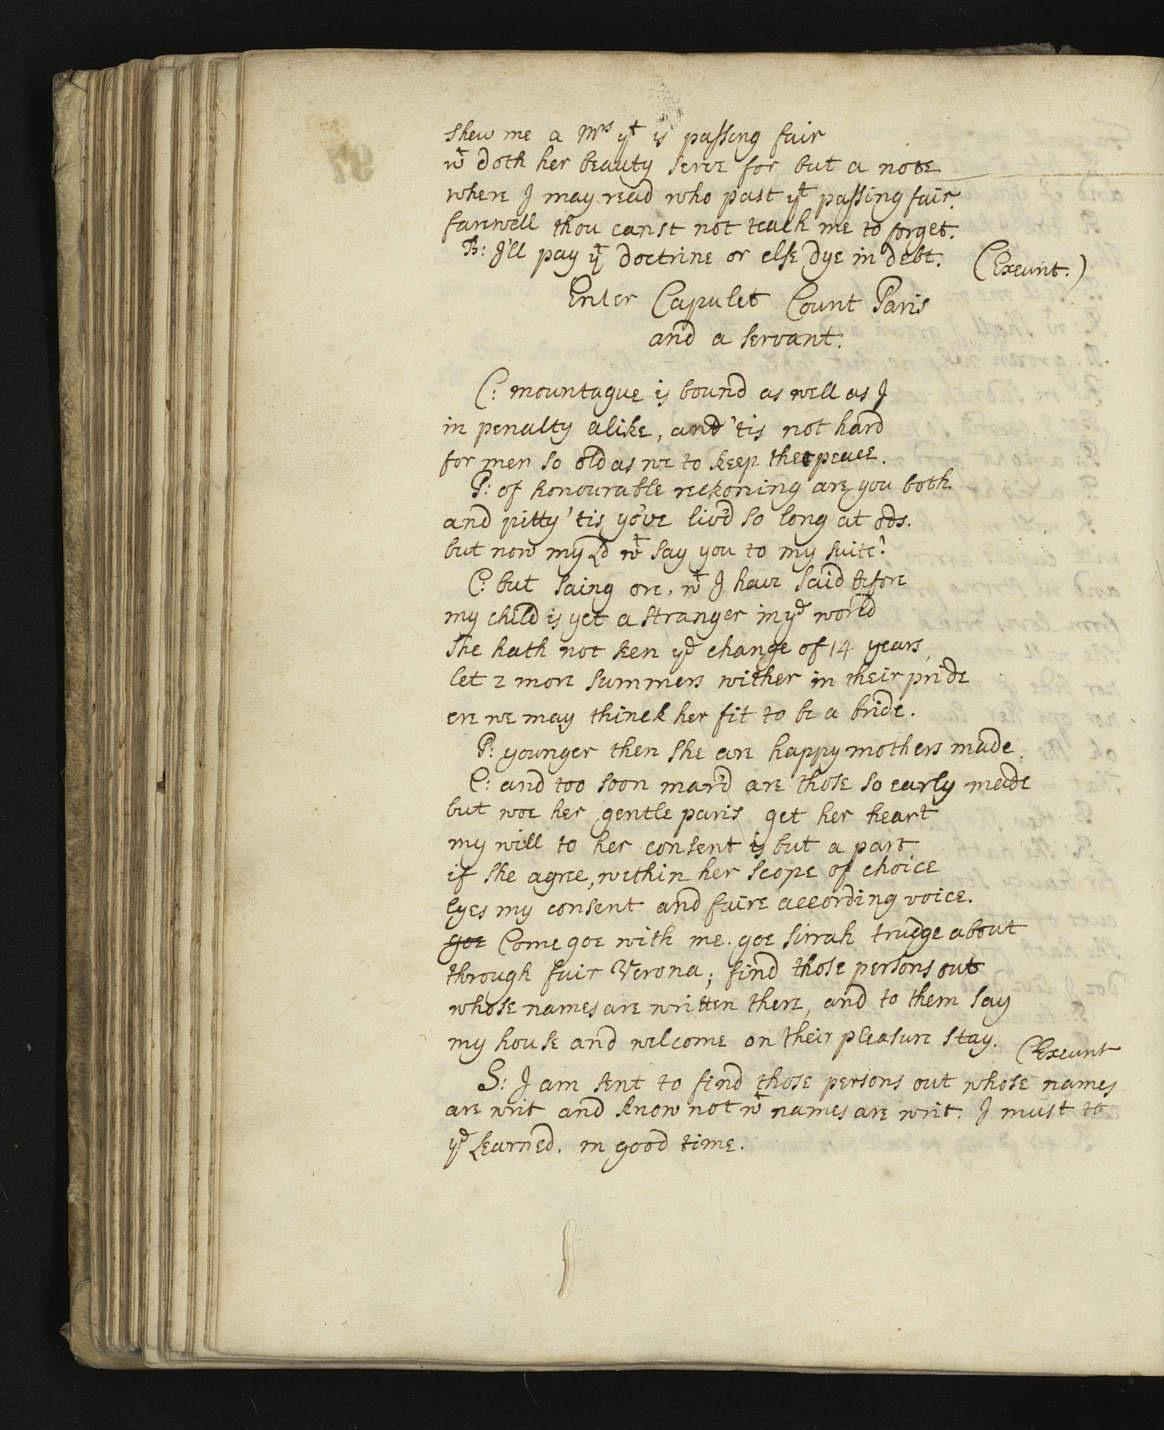 shew me a Mrs yt is passing fair
wt doth her beauty serve for but a note
where I may read who past yt passing fair.
farewell thou canst not teach me to forget.
B: I'll pay yt doctrine or else dye in debt. (Exeunt.)
Enter Capulet Count Paris
and a servant:
C: mountague is bound as well as I
in penalty alike, and 'tis not hard
for men so old as we to keep the peace.
P: of honourable reckoning are you both
and pitty 'tis yo've liv'd so long at ods.
but now my Ld wt say you to my suite?
C: but saing ore, wt I have said before
my child is yet a stranger in ye world
she hath not seen ye change of 14 years,
let 2 more summers wither in their pride
ere we may thinck her fit to be a bride.
P: younger then she are happy mothers made.
C: and too soon mar'd are those so early made
but woe her gentle paris get her heart
my will to her consent is but a part
if she agree, within her scope of choice
lyes my consent and faire according voice.
goe Come goe with me. goe sirrah trudge about
through fair Verona; find those persons out
whose names are written there, and to them say
my house and welcome on their pleasure stay. (Exeunt
S: I am sent to find those persons out whose names
are writ and know not wt names are writ. I must to
ye Learned. in good time.